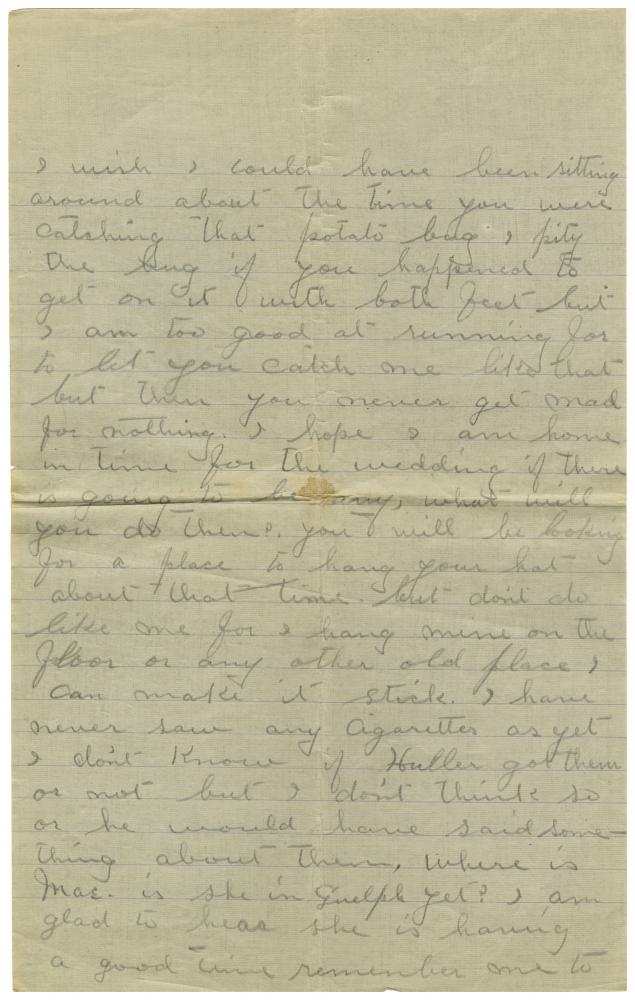 I wish I could have been sitting
around about the time you were
catching that potato bug, I pity
the bug if you happened to
get on it with both feet but
I am too good at running for
to let you catch me like that
but then you never get mad
for nothing. I hope I am home
in time for the wedding if there
is going to be any, what will
you do then?. you will be looking
for a place to hang your hat
about that time. but don't do
like me for I hang mine on the
floor or any other old place I
can make it stick. I have
never saw any cigarettes as yet
I don't know if Huller got them
or not but I don't think so
or he would have said some-
thing about them, where is
Mae. is she in Guelph yet? I am
glad to hear she is having
a good time remember me to